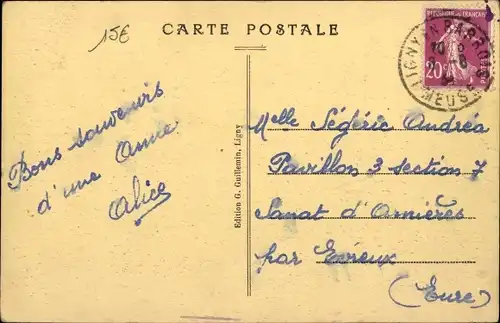 15€
CARTE POSTALE
LIGNY-EN-BARROIS
MEUSE
20c
POSTES
Bons souvenirs
d'une Amie
Alice
Edition G. Guillemin, Ligny
Melle Ségéric Andréa
Pavillon 3 section 7
Sanat d'Arnières
par Evreux
(Eure)